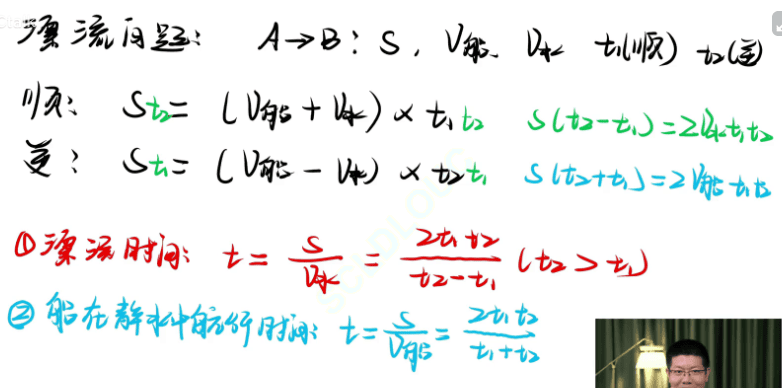 漂流问题: A→B: S, V船 V水 t₁(顺) t₂(逆)
顺: St₂=(V船+V水)×t₁t₂ S(t₂-t₁)=2V水t₁t₂
逆: St₁=(V船-V水)×t₂t₁ S(t₂+t₁)=2V船t₁t₂
①漂流时间: t=S/V水=2t₁t₂/(t₂-t₁) (t₂>t₁)
②船在静水中航行时间: t=S/V船=2t₁t₂/(t₁+t₂)